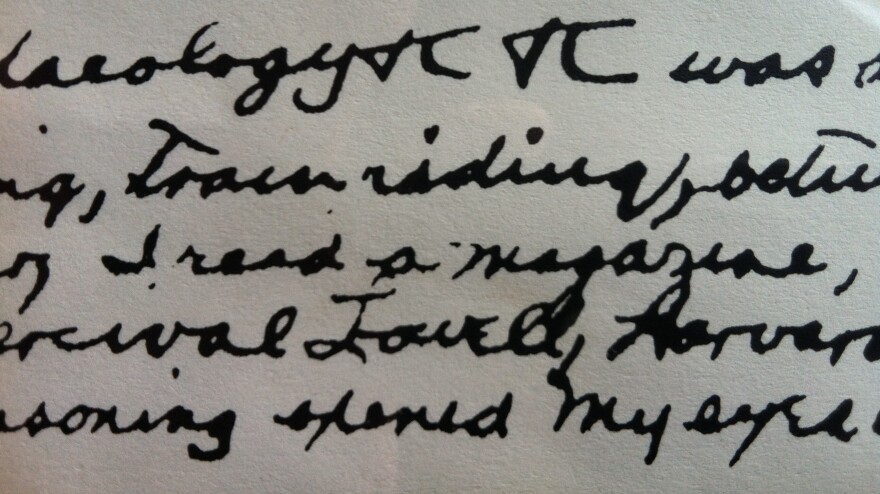 daeology π π was
ng, Train riding, betw
I read a magazine,
ercival Lowell, Harvar
soning opened my eyes